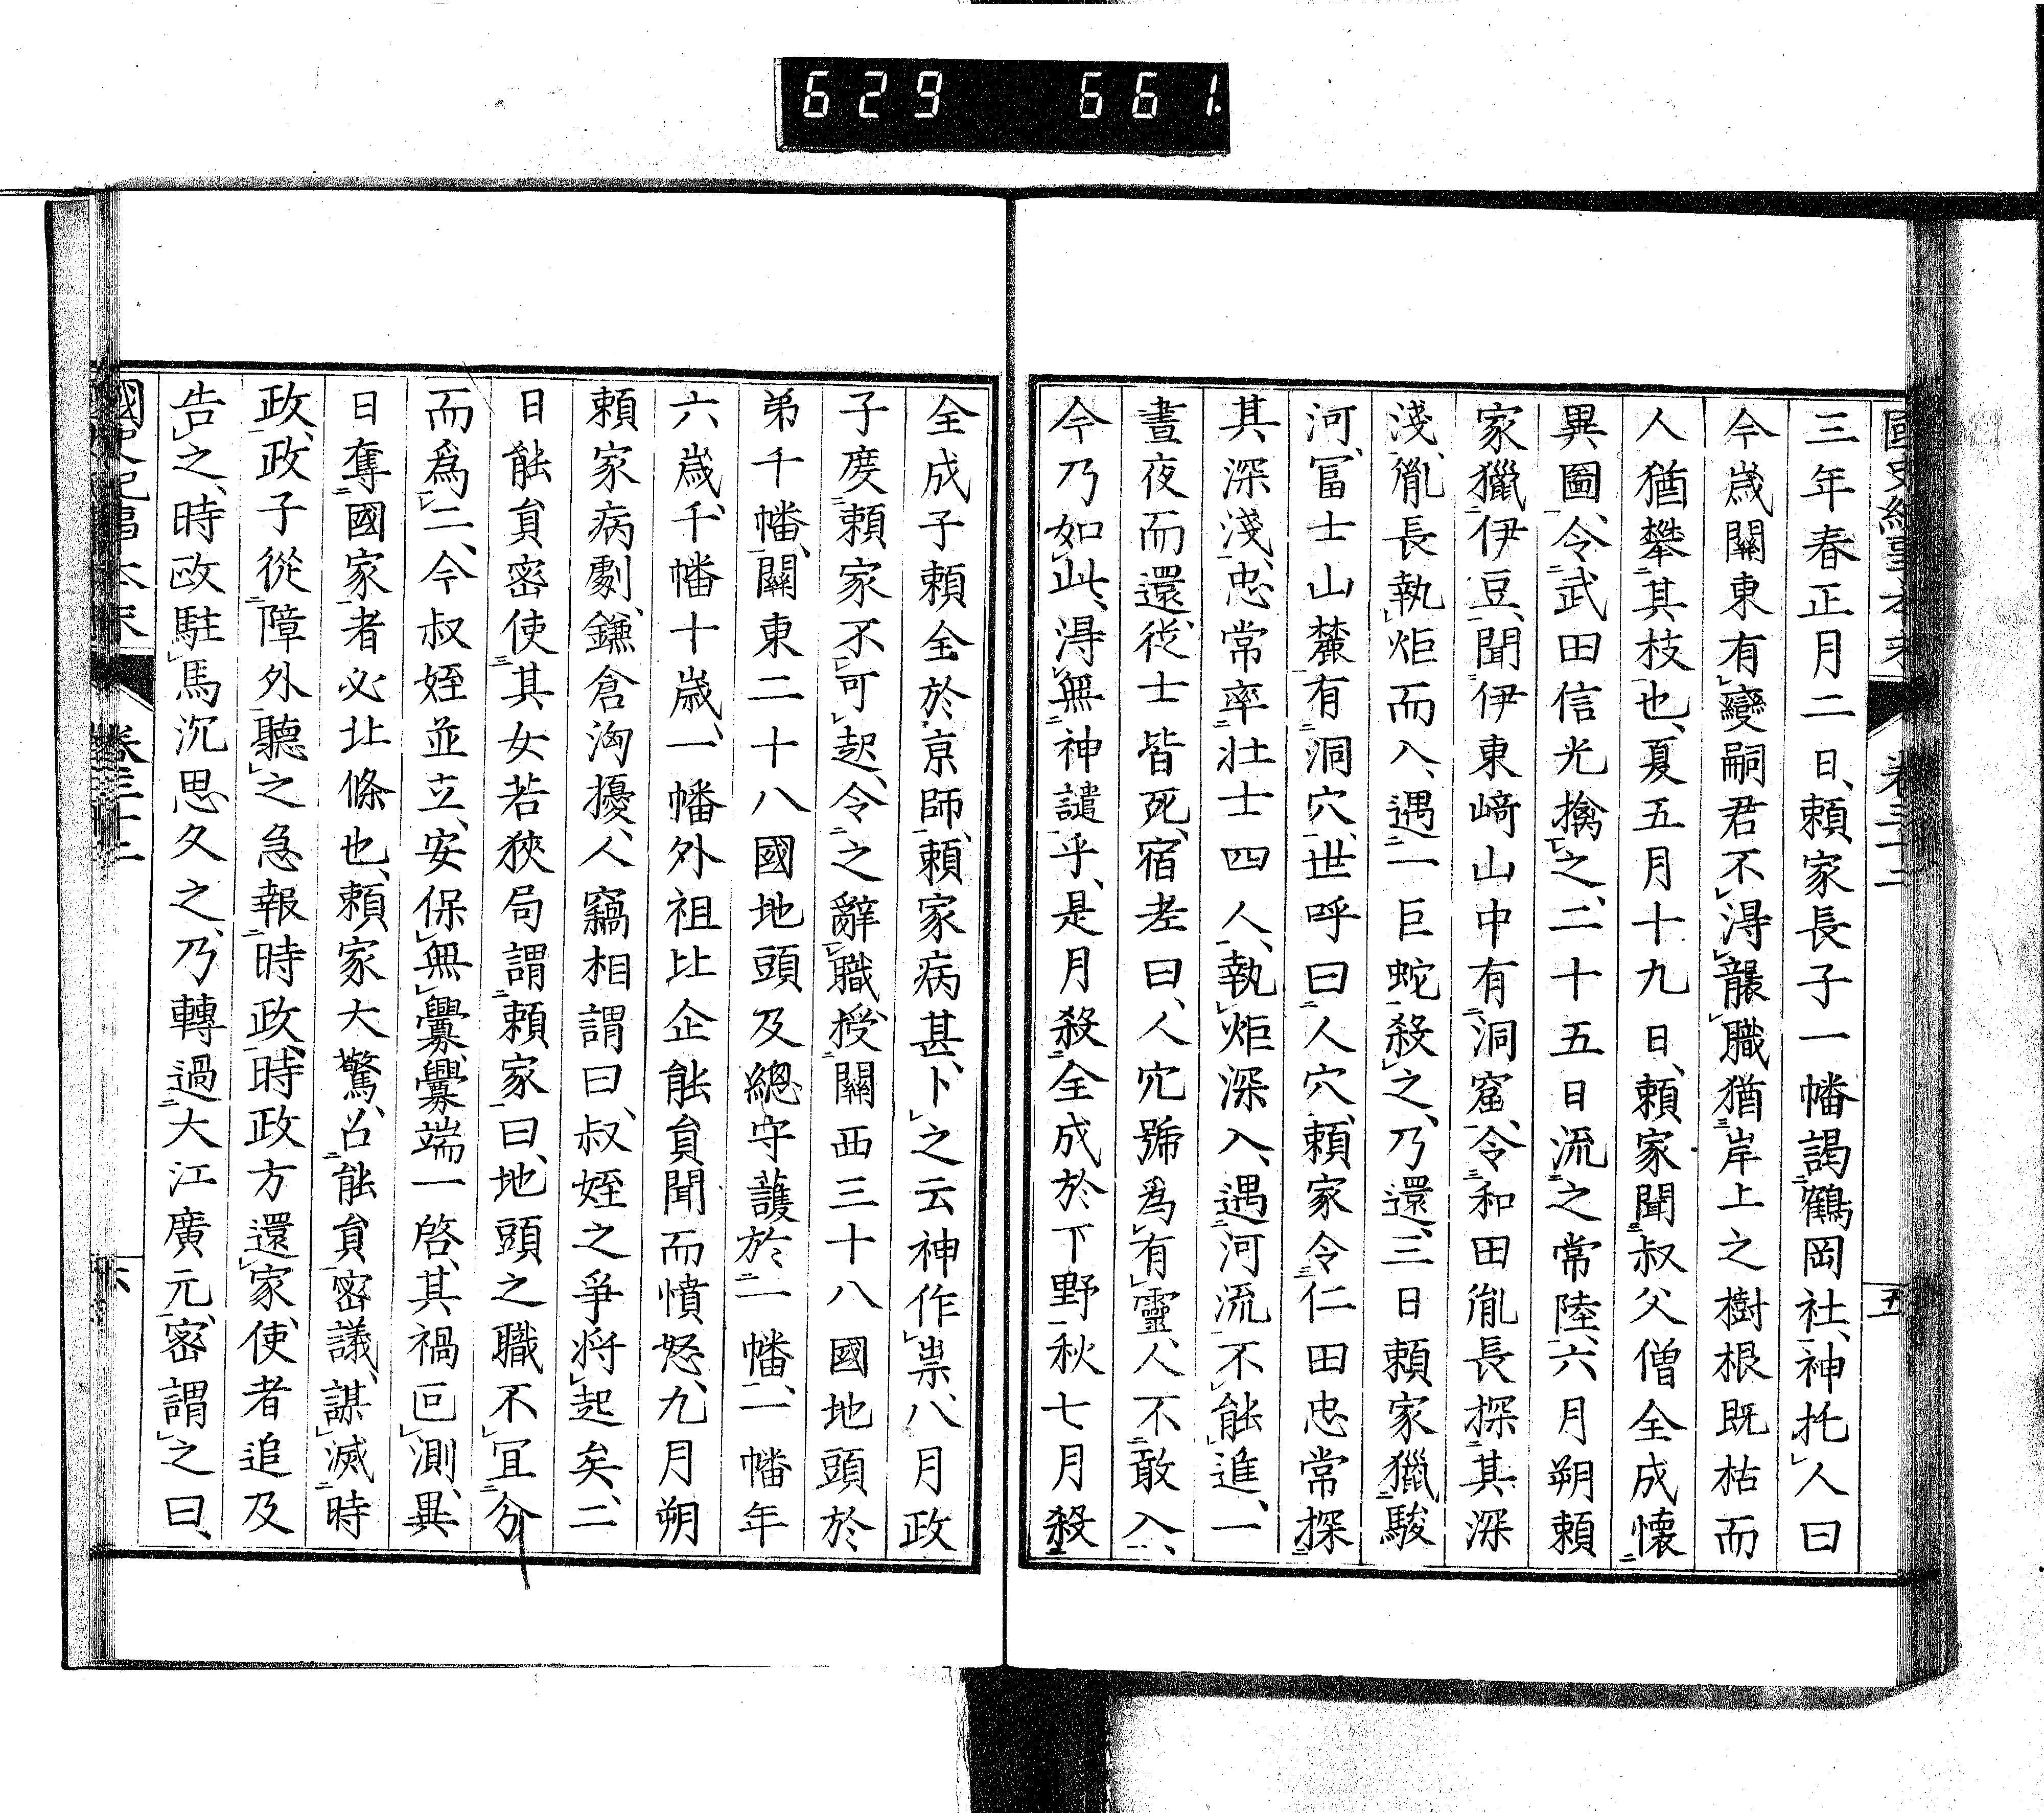 629 661
三年春正月二日、賴家長子一幡謁鶴岡社、神托人曰
今歲關東有變嗣君不得襲職猶岸上之樹根既枯而
人猶攀其枝也、夏五月十九日、賴家聞叔父僧全成懷
異圖、令武田信光擒之、二十五日流之常陸、六月朔賴
家獵伊豆、聞伊東﨑山中有洞窟、令和田胤長探其深
淺、胤長執炬而入、遇一巨蛇殺之、乃還、三日賴家獵駿
河、冨士山麓有洞穴、世呼曰人穴、賴家令仁田忠常探
其深淺、忠常率壯士四人、執炬深入、遇河流不能進、一
晝夜而還、從士皆死、宿老曰、人穴號爲有靈、人不敢入、
今乃如此、得無神譴乎、是月殺全成於下野秋七月殺
全成子賴全於京師、賴家病甚、卜之云神作祟、八月政
子度賴家不可起、令之辭職、授關西三十八國地頭於
弟千幡、關東二十八國地頭及總守護於一幡、一幡年
六歲、千幡十歲、一幡外祖比企能員聞而憤怒、九月朔
賴家病劇、鎌倉洶擾、人竊相謂曰、叔姪之爭將起矣、二
日能員密使其女若狹局謂賴家曰、地頭之職不宜分
而爲二、今叔姪並立、安保無釁、釁端一啓、其禍叵測、異
日奪國家者必北條也、賴家大驚、召能員密議、謀滅時
政、政子從障外聽之急報時政、時政方還家、使者追及
告之、時政駐馬沉思久之、乃轉過大江廣元、密謂之曰、
卷三十二
五
六